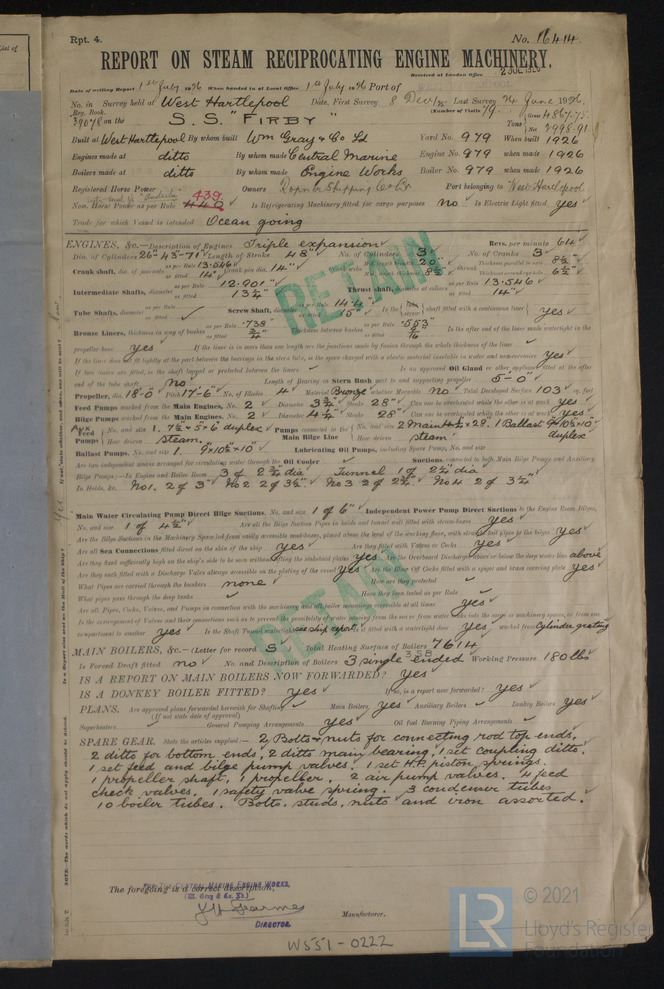 Rpt. 4.
No. 16414
REPORT ON STEAM RECIPROCATING ENGINE MACHINERY.
Received at London Office 2 JUL 1926
Date of writing Report 1st July 1926 When handed in at Local Office 1st July 1926 Port of
No. in Survey held at West Hartlepool Date, First Survey 8 Dec/25 Last Survey 24 June 1926
Reg. Book. (Number of Visits 79
39078 on the S.S. "FIRBY" Tons Gross 4867.75 Net 2998.91
Built at West Hartlepool By whom built Wm Gray & Co Ld Yard No. 979 When built 1926
Engines made at ditto By whom made Central Marine Engine No. 979 when made 1926
Boilers made at ditto By whom made Engine Works Boiler No. 979 when made 1926
Registered Horse Power Owners Ropner Shipping Co Ld Port belonging to West Hartlepool
Nom. Horse Power as per Rule 440 439 Is Refrigerating Machinery fitted for cargo purposes no Is Electric Light fitted yes
Trade for which Vessel is intended Ocean going
ENGINES, &c.—Description of Engines Triple expansion Revs. per minute 64
Dia. of Cylinders 26" 43"-71" Length of Stroke 48" No. of Cylinders 3 No. of Cranks 3
Crank shaft, dia. of journals as per Rule 13.546 as fitted 14" Crank pin dia. 14" 20" 8½" 8½" 6½"
Intermediate Shafts, diameter as per Rule 12.901" as fitted 13¼" Thrust shaft, diameter at collars as per Rule 13.546 as fitted 14"
Tube Shafts, diameter as per Rule as fitted Screw Shaft, diameter as per Rule 14.4 as fitted 15" Is the shaft fitted with a continuous liner yes
Bronze Liners, thickness in way of bushes as per Rule .738" as fitted ¾" Thickness between bushes as per Rule .553 as fitted 9/16 Is the after end of the liner made watertight in the
propeller boss yes If the liner is in more than one length are the joints made by fusion through the whole thickness of the liner
If the liner does not fit tightly at the part between the bearings in the stern tube, is the space charged with a plastic material insoluble in water and non-corrosive yes
If two liners are fitted, is the shaft lapped or protected between the liners Is an approved Oil Gland or other appliance fitted at the after
end of the tube shaft no Length of Bearing in Stern Bush next to and supporting propeller 5'-0"
Propeller, dia. 18'-0" Pitch 17'-6" No. of Blades 4 Material Bronze whether Moveable no Total Developed Surface 103 sq. feet
Feed Pumps worked from the Main Engines, No. 2 Diameter 3¾" Stroke 28" Can one be overhauled while the other is at work yes
Bilge Pumps worked from the Main Engines, No. 2 Diameter 4½" Stroke 28" Can one be overhauled while the other is at work yes
Aux Feed Pumps No. and size 1. 7½"×5"×6" duplex Pumps connected to the Main Bilge Line No. and size 2 Main 4½×28. 1 Ballast 9"×10½×10" duplex
How driven steam. How driven steam
Ballast Pumps, No. and size 1. 9"×10½×10" Lubricating Oil Pumps, including Spare Pump, No. and size
Are two independent means arranged for circulating water through the Oil Cooler Suctions, connected to both Main Bilge Pumps and Auxiliary
Bilge Pumps;—In Engine and Boiler Room 3 of 2¾" dia Tunnel 1 of 2½" dia
In Holds, &c. No1. 2 of 3" No2 2 of 3½" No3 2 of 2½" No4 2 of 3½"
Main Water Circulating Pump Direct Bilge Suctions, No. and size 1 of 6" Independent Power Pump Direct Suctions to the Engine Room Bilges,
No. and size 1 of 4½" Are all the Bilge Suction Pipes in holds and tunnel well fitted with strum-boxes yes
Are the Bilge Suctions in the Machinery Space led from easily accessible mud-boxes, placed above the level of the working floor, with straight tail pipes to the bilges yes
Are all Sea Connections fitted direct on the skin of the ship yes Are they fitted with Valves or Cocks yes
Are they fixed sufficiently high on the ship's side to be seen without lifting the stokehold plates yes Are the Overboard Discharges above or below the deep water line above
Are they each fitted with a Discharge Valve always accessible on the plating of the vessel yes Are the Blow Off Cocks fitted with a spigot and brass covering plate yes
What Pipes are carried through the bunkers none How are they protected
What pipes pass through the deep tanks Have they been tested as per Rule
Are all Pipes, Cocks, Valves, and Pumps in connection with the machinery and all boiler mountings accessible at all times yes
Is the arrangement of Valves and their connections such as to prevent the possibility of water passing from the sea or from water tanks into the cargo or machinery spaces, or from one
compartment to another yes Is the Shaft Tunnel watertight see ship report Is it fitted with a watertight door yes worked from Cylinder grating
MAIN BOILERS, &c.—(Letter for record S) Total Heating Surface of Boilers 7614
3 SB
Is Forced Draft fitted no No. and Description of Boilers 3 single ended Working Pressure 180 lbs
IS A REPORT ON MAIN BOILERS NOW FORWARDED? yes
IS A DONKEY BOILER FITTED? yes If so, is a report now forwarded? yes
PLANS. Are approved plans forwarded herewith for Shafting Main Boilers yes Auxiliary Boilers Donkey Boilers yes
(If not state date of approval)
Superheaters General Pumping Arrangements yes Oil fuel Burning Piping Arrangements
SPARE GEAR. State the articles supplied:— 2 Bolts & nuts for connecting rod top ends,
2 ditto for bottom ends, 2 ditto main bearing. 1 set coupling ditto.
1 set feed and bilge pump valves. 1 set H.P. piston springs.
1 propeller shaft, 1 propeller. 2 air pump valves. 4 feed
check valves, 1 safety valve spring. 3 condenser tubes
10 boiler tubes. Bolts, studs, nuts and iron assorted.
RETAIN
RETAIN
RETAIN
The foregoing is a correct description,
FOR THE CENTRAL MARINE ENGINE WORKS.
(Wm. Gray & Co. Ld.)
DIRECTOR
Manufacturer.
W551-0222
© 2021
LR
Lloyd's Register
Foundation